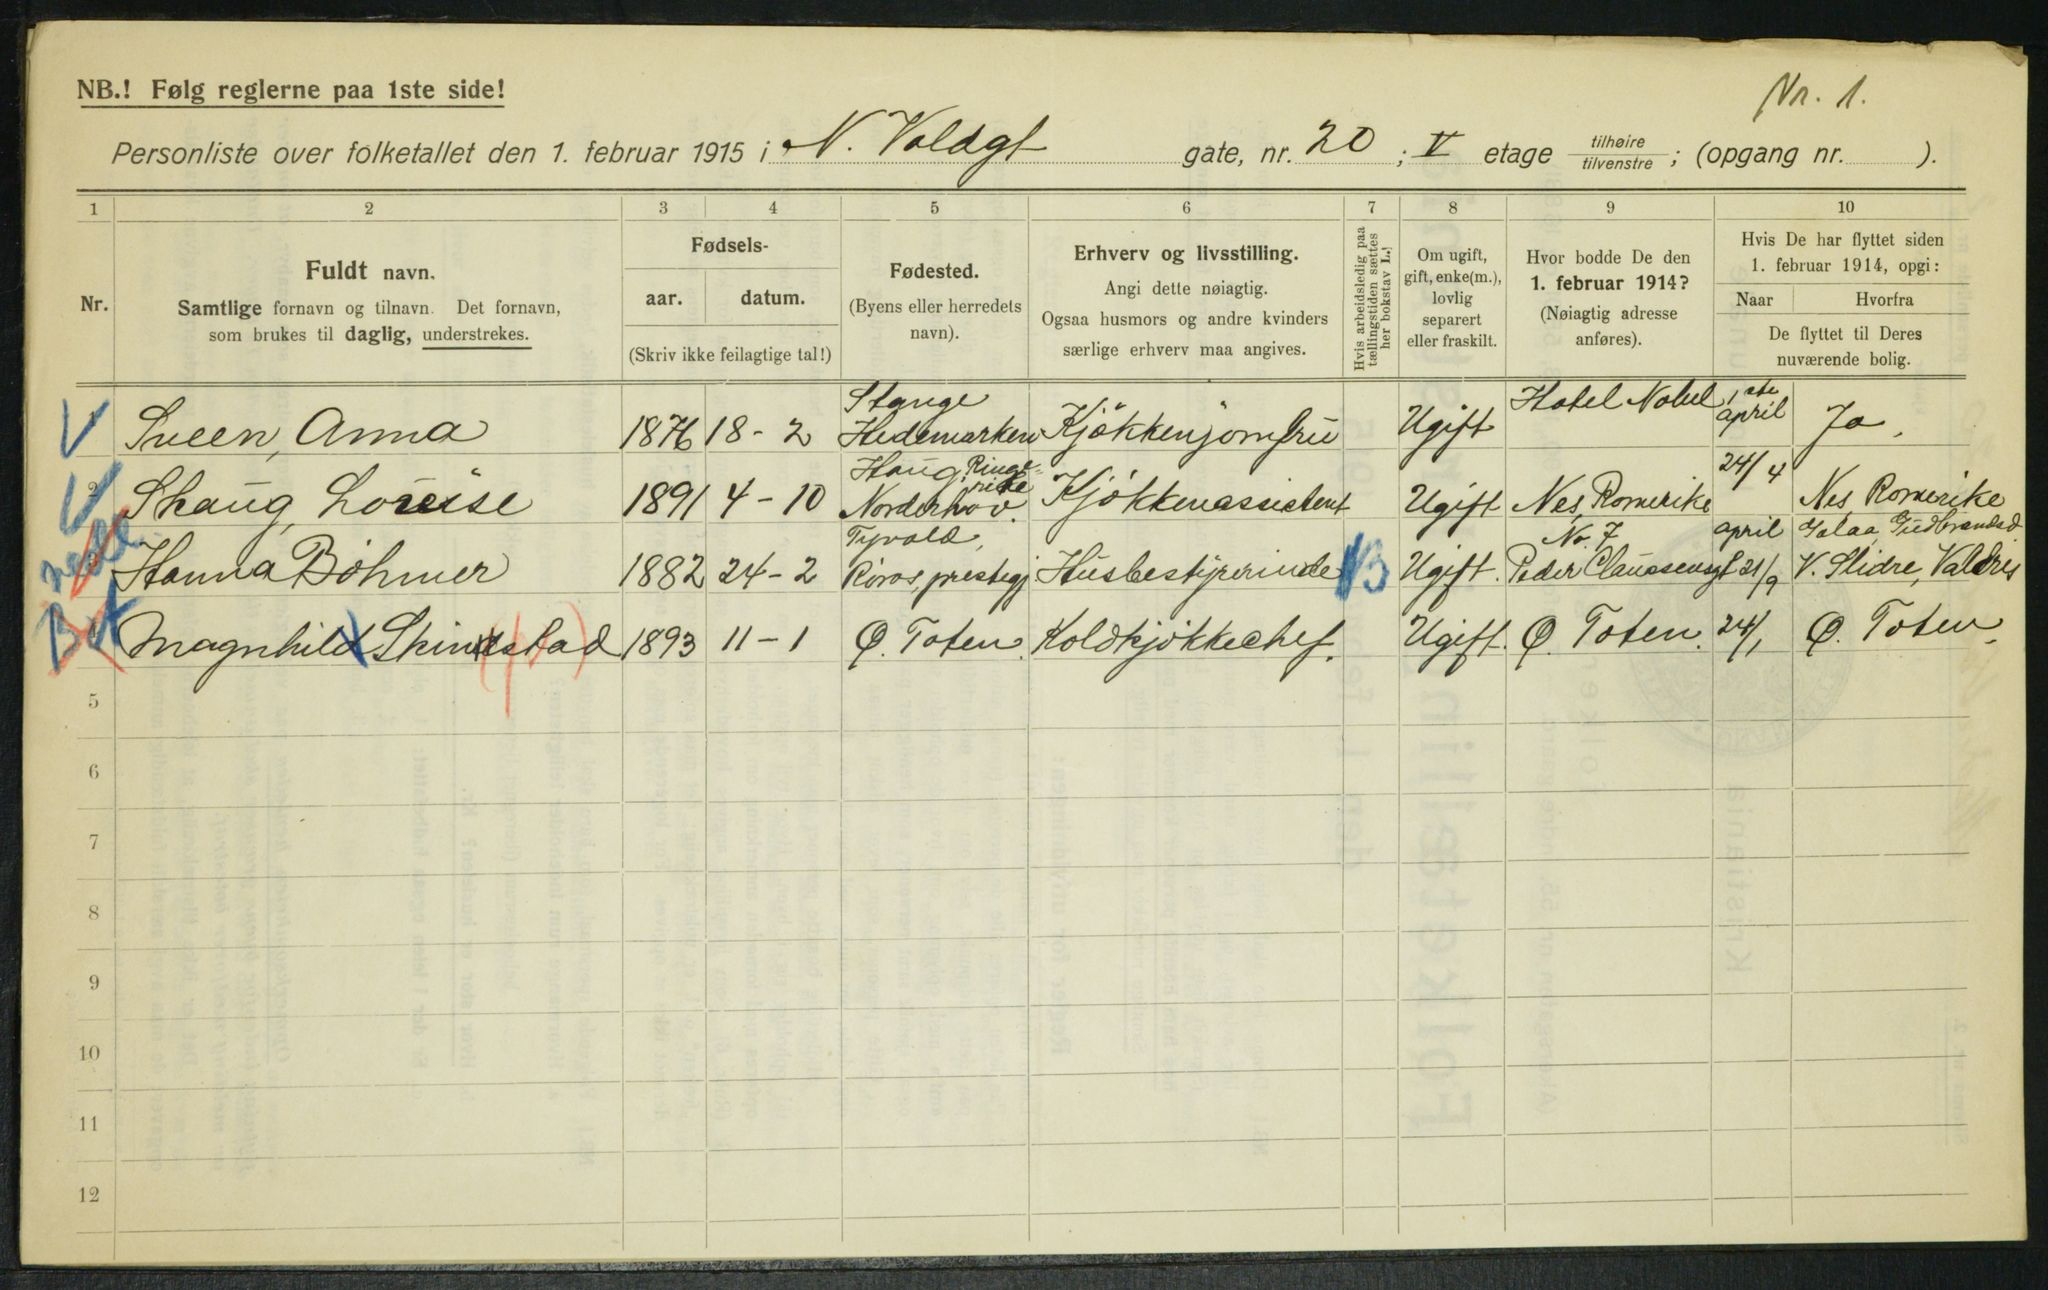 Nr. 1.
NB.! Følg reglerne paa 1ste side!
Personliste over folketallet den 1. februar 1915 i N. Voldgt gate, nr. 20 ; V etage tilhøire tilvenstre ; (opgang nr. ).
1 2 3 4 5 6 7 8 9 10
Nr.
Fuldt navn.
Samtlige fornavn og tilnavn. Det fornavn,
som brukes til daglig, understrekes.
Fødsels-
aar. datum.
(Skriv ikke feilagtige tal!)
Fødested.
(Byens eller herredets
navn).
Erhverv og livsstilling.
Angi dette nøiagtig.
Ogsaa husmors og andre kvinders
særlige erhverv maa angives.
Hvis arbeidsledig paa
tællingstiden sættes
her bokstav L.!
Om ugift,
gift, enke(m.),
lovlig
separert
eller fraskilt.
Hvor bodde De den
1. februar 1914?
(Nøiagtig adresse
anføres).
Hvis De har flyttet siden
1. februar 1914, opgi:
Naar Hvorfra
De flyttet til Deres
nuværende bolig.
1 Sveen, Anna 1876 18-2 Stange Hedemarken Kjökkenjomfru Ugift Hotel Nobel 1ste april Ja.
2 Skaug, Louise 1891 4-10 Haug, Ringerike Norderhov. Kjökkenassistent Ugift Nes Romerike 24/4 Nes Romerike
3 Hanna Böhmer 1882 24-2 Tyvold, Röros, prestegj Husbestyrerinde Ugift. No. 7 Peder Claussensgt april 21/9 Golaa, Gudbrandsd V. Slidre, Valdris
4 Magnhild Skindstad 1893 11-1 Ø. Toten. Koldkjökkechef. Ugift. Ø. Toten. 24/1 Ø. Toten.
5
6
7
8
9
10
11
12